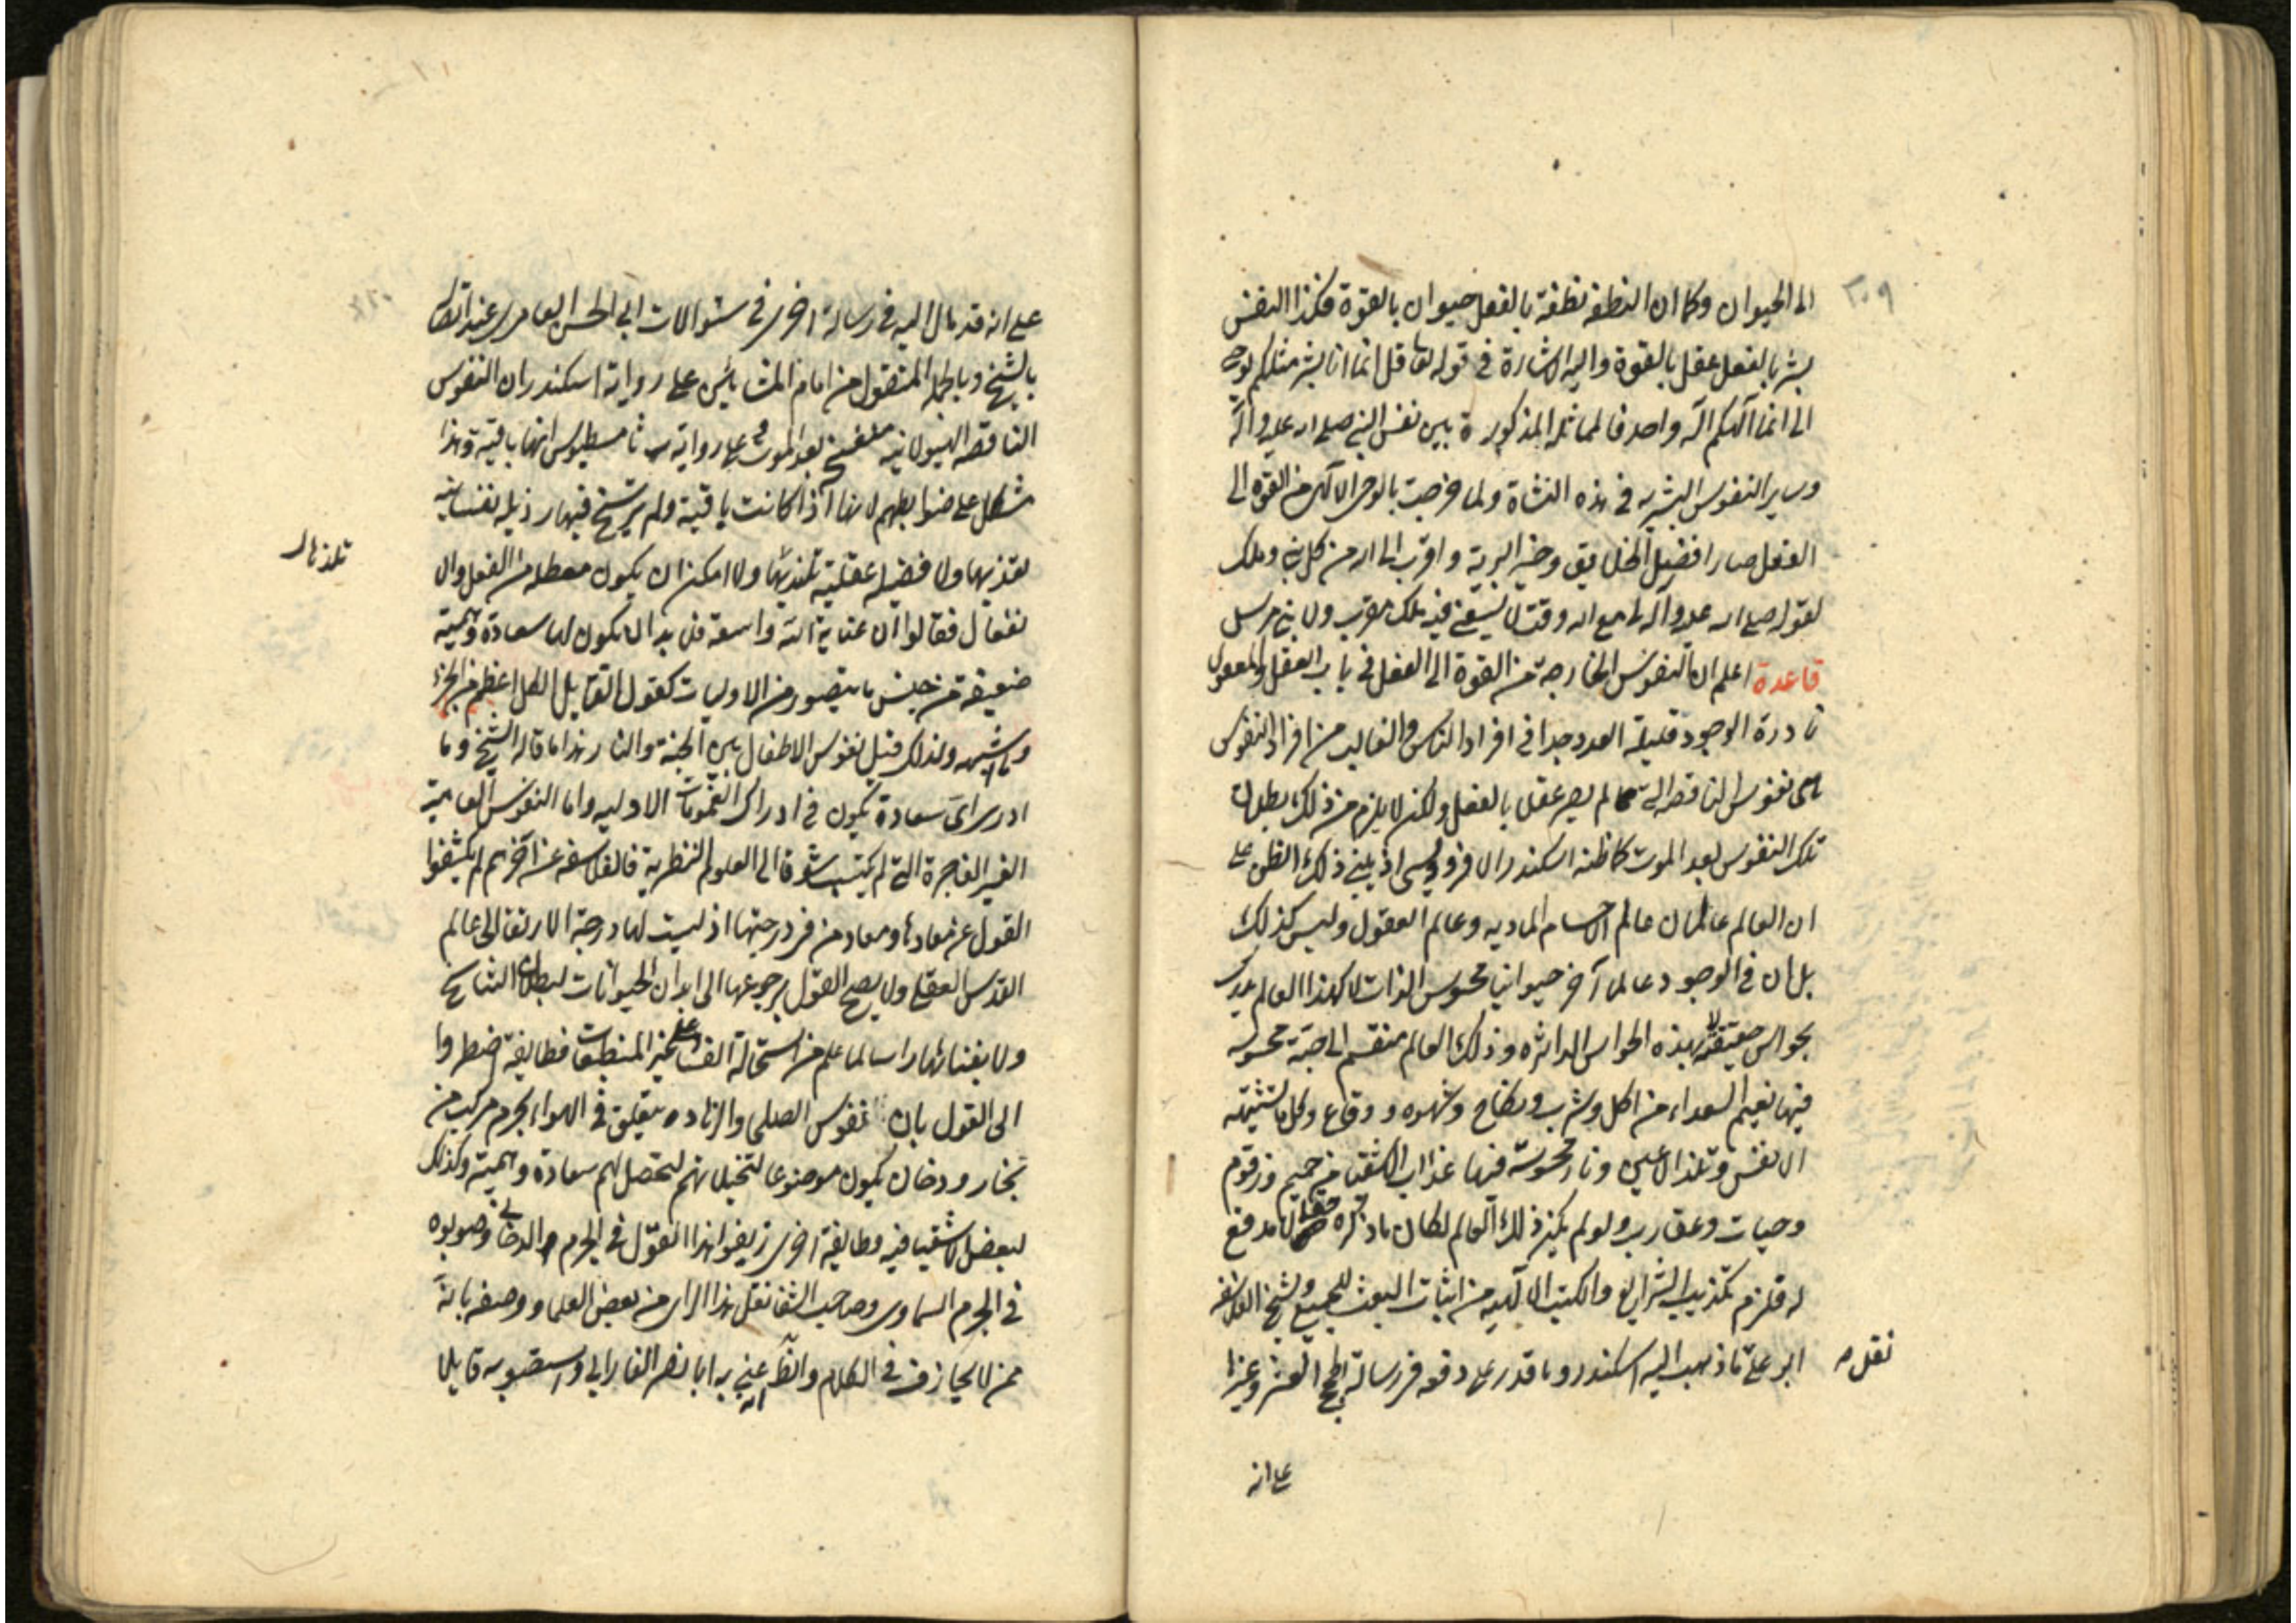 ٢٠٩
الى الحيوان وكما ان النطفه نطفة بالفعل حيوان بالقوة فكذا النفس
بشر بالفعل عقل بالقوة واليه الاشارة في قوله تعا قل انما انا بشر مثلكم يوحى
الى انما آلهكم اله واحد فالمماثلة المذكورة بين نفس النبي صلى الله عليه وآله
وساير النفوس البشريه في هذه النشاة ولما خرجت بالوحى الآلهى من القوه الى
الفعل صار افضل الخلايق وخير البرية واقرب الى الله من كل نبى وملك
لقوله صلى الله عليه وآله لى مع الله وقت لا يسعنى فيه ملك مقرب ولا نبي مرسل
قاعدة اعلم ان النفوس الخارجة من القوة الى الفعل في باب العقل والمعقول
نادرة الوجود قليلة العدد جدا في افراد الناس والغالب من افراد النفوس
هى نفوس الناقصه التى لم يصر عقلا بالفعل ولكن لا يلزم من ذلك بطلان
تلك النفوس بعد الموت كما ظنه اسكندر الافرودوسى اذ يبنى ذلك الظن على
ان العالم عالمان عالم الاجسام الماديه وعالم العقول وليس كذلك
بل ان في الوجود عالما آخر حيوانيا محسوس الذات لا كهذا العالم يدرك
بحواس حقيقة لا بهذه الحواس الداثره وذلك العالم منقسم الى جنة محسوسه
فيها نعيم السعداء من اكل وشرب ونكاح وشهوه ووقاع وكل ما تشتهيه
الانفس وتلذ الاعين ونار محسوسة فيها عذاب الاشقيا من حميم وزقوم
وحيات وعقارب ولو لم يكن ذلك العالم لكان ما ذكره حقا لا مدفع
له فلزم تكذيب الشرايع والكتب الالهيه من اثبات البعث للجميع وشيخ الفلاسفه
نقل
ابو على ما ذهب اليه اسكندر وما قدر على دفعه فى رسالة الحجج العشر وغيرها
على انه
على انه قد مال اليه في رسالة اخرى في سئوالات ابى الحسن العامرى عند
بالشيخ وبالجمله المنقول من امام المشائين على رواية اسكندر ان النفوس
الناقصه الهيولانيه منفسخ بعد الموت وعلى رواية ثامسطيوس انها باقية وهذا
مشكل على ضوابطهم لانها اذا كانت باقية ولم ترسخ فيها رذيله نفسانيه
تلذ بها
تعذبها ولا فضيله عقلية تلذبها ولا امكن ان يكون معطله من الفعل والا
نفعال فقالوا ان عناية الله واسعة فلا بد ان يكون لها سعادة وهمية
ضعيفة من جنس ما يتصور من الاوليات كقول القايل الكل اعظم من الجزء
وما شبهه ولذلك قيل نفوس الاطفال بين الجنة والنار هذا ما قاله الشيخ وما
ادرى اى سعادة يكون في ادراك العموميات الاوليه واما النفوس العامية
الغير الفاجرة التى لم يكتسب شوقا الى العلوم النظرية فالفلاسفه عن آخرهم لم يكشفوا
القول عن معادها ومعاد من فى درجتها اذ ليست لها درجة الارتفاء الى عالم
القدس العقلى ولا يصح القول برجوعها الى ابدان الحيوانات لبطلان التناسخ
ولا بفنائها راسا لما علم من استحالة الفساد على غير المنطبعات فطايفة اضطروا
الى القول بان نفوس الصلحا والزهاده يتعلق في الهواء بجرم مركب من
بخار ودخان يكون موضوعا لتخيلاتهم لتحصل لهم سعادة وهمية وكذلك
لبعض الاشقيا فيه وطايفة اخرى زيفوا هذا القول في الجرم الدخانى وصوبوه
في الجرم السماوى وصاحب الشفا نقل هذا الراى من بعض العلما ووصفه بانه
ممن لا يجازف في الكلام والظاهر انه عنى به ابا نصر الفارابى واستصوبه قايلا